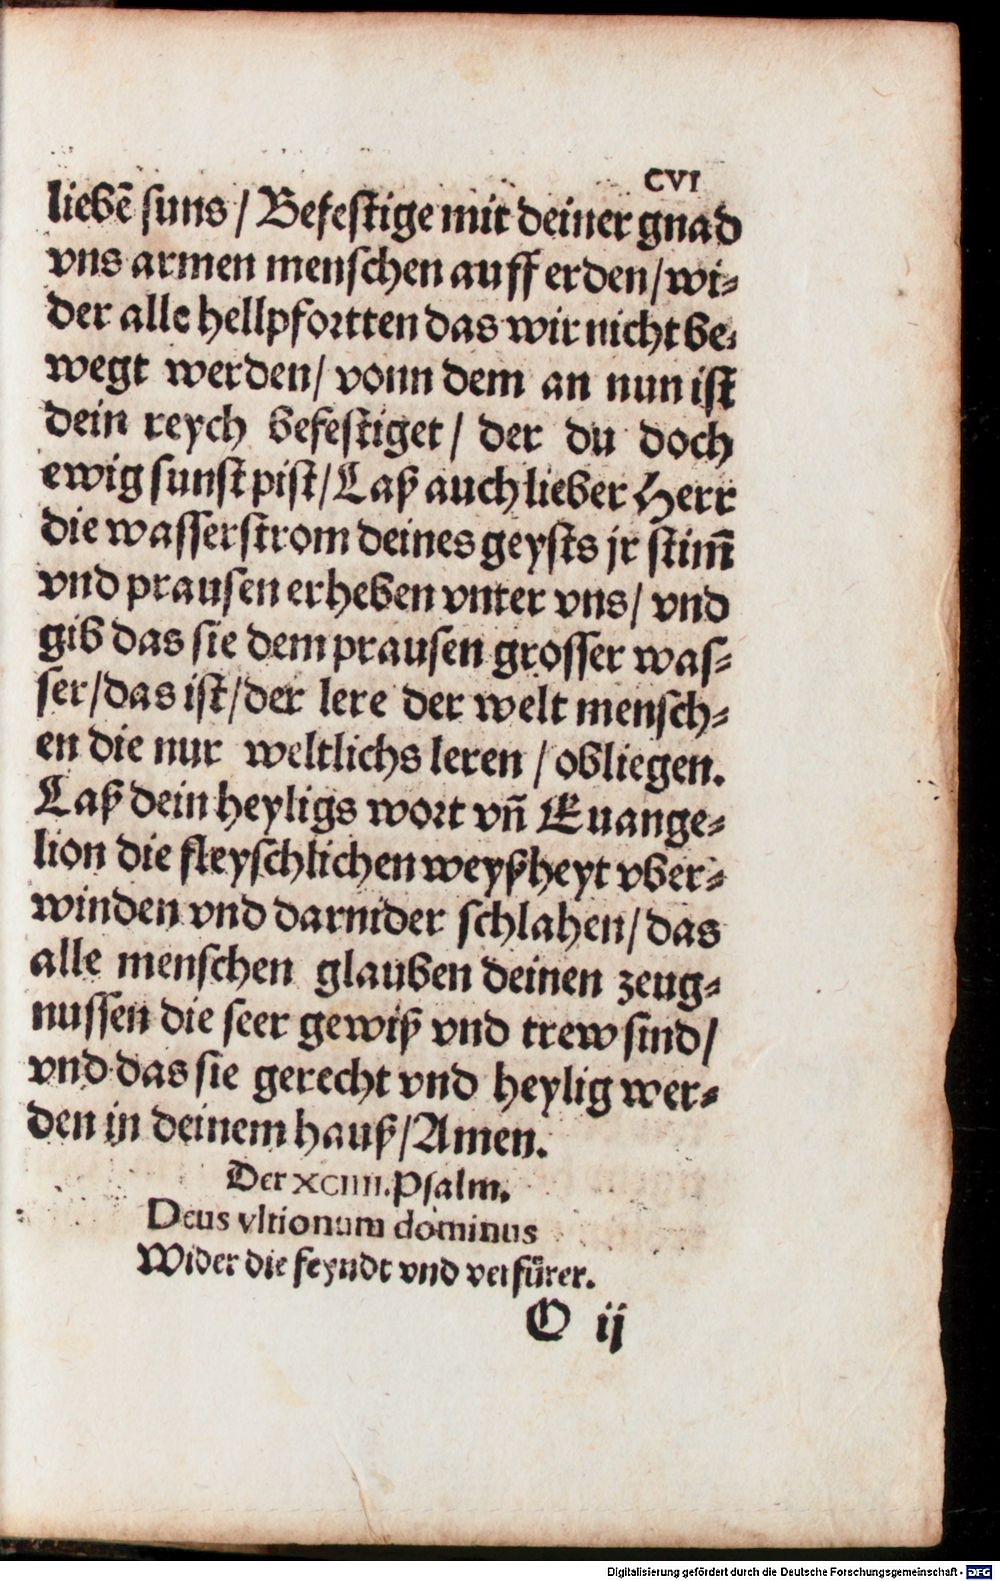 CVI
liebē suns / Befestige mit deiner gnad
vns armen menschen auff erden / wi⸗
der alle hellpfortten das wir nicht be⸗
wegt werden / vonn dem an nun ist
dein reych befestiget / der du doch
ewig sunst pist / Laß auch lieber Herr
die wasserstrom deines geysts jr stim̄
vnd prausen erheben vnter vns / vnd
gib das sie dem prausen grosser was⸗
ser / das ist / der lere der welt mensch⸗
en die nur weltlichs leren / obliegen.
Laß dein heyligs wort vn̄ Euange⸗
lion die fleyschlichen weyßheyt vber⸗
winden vnd darnider schlahen / das
alle menschen glauben deinen zeug⸗
nussen die seer gewiß vnd trew sind /
vnd das sie gerecht vnd heylig wer⸗
den in deinem hauß / Amen.
Der XCIIII. Psalm.
Deus vltionum dominus
Wider die feyndt vnd verfürer.
O ij
Digitalisierung gefördert durch die Deutsche Forschungsgemeinschaft - DFG